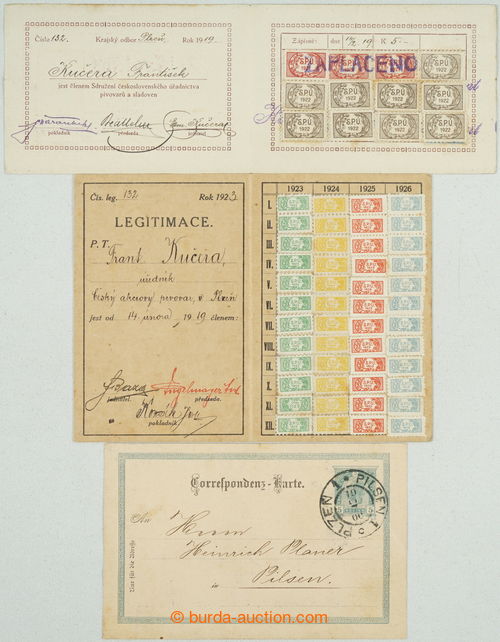 Číslo 132. Krajský odbor Plzeň Rok 1919.
Kučera František
jest členem Sdružení československého úřadnictva
pivovarů a sladoven
pokladník předseda jednatel
Zápisné: dne 14/2 19. K 5.-
ZAPLACENO
SPÚ 1922 SPÚ 1922 SPÚ 1922 SPÚ 1922
SPÚ 1922 SPÚ 1922 SPÚ 1922 SPÚ 1922
Čís. leg. 132. Rok 1923.
LEGITIMACE.
P. T.
Frant. Kučera,
úředník
Český akciový pivovar, v Plzni
jest od 14. února 1919 členem:
jednatel. předseda.
pokladník.
1923 1924 1925 1926
I.
II.
III.
IV.
V.
VI.
VII.
VIII.
IX.
X.
XI.
XII.
Correspondenz-Karte.
PILSEN 1
PLZEŇ 1
5 5
An Herrn
Heinrich Planer
in Pilsen.
Nur für die Adresse
© burda-auction.com